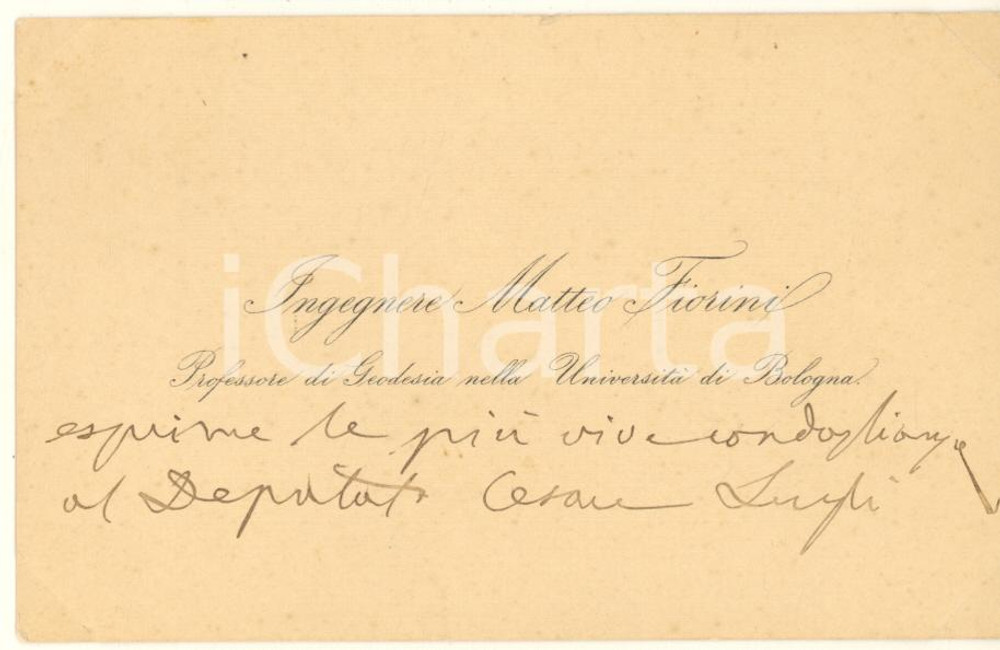 Ingegnere Matteo Fiorini
Professore di Geodesia nella Università di Bologna.
esprime le più vive condoglianze
al Deputato Cesare Lugli
iCharta